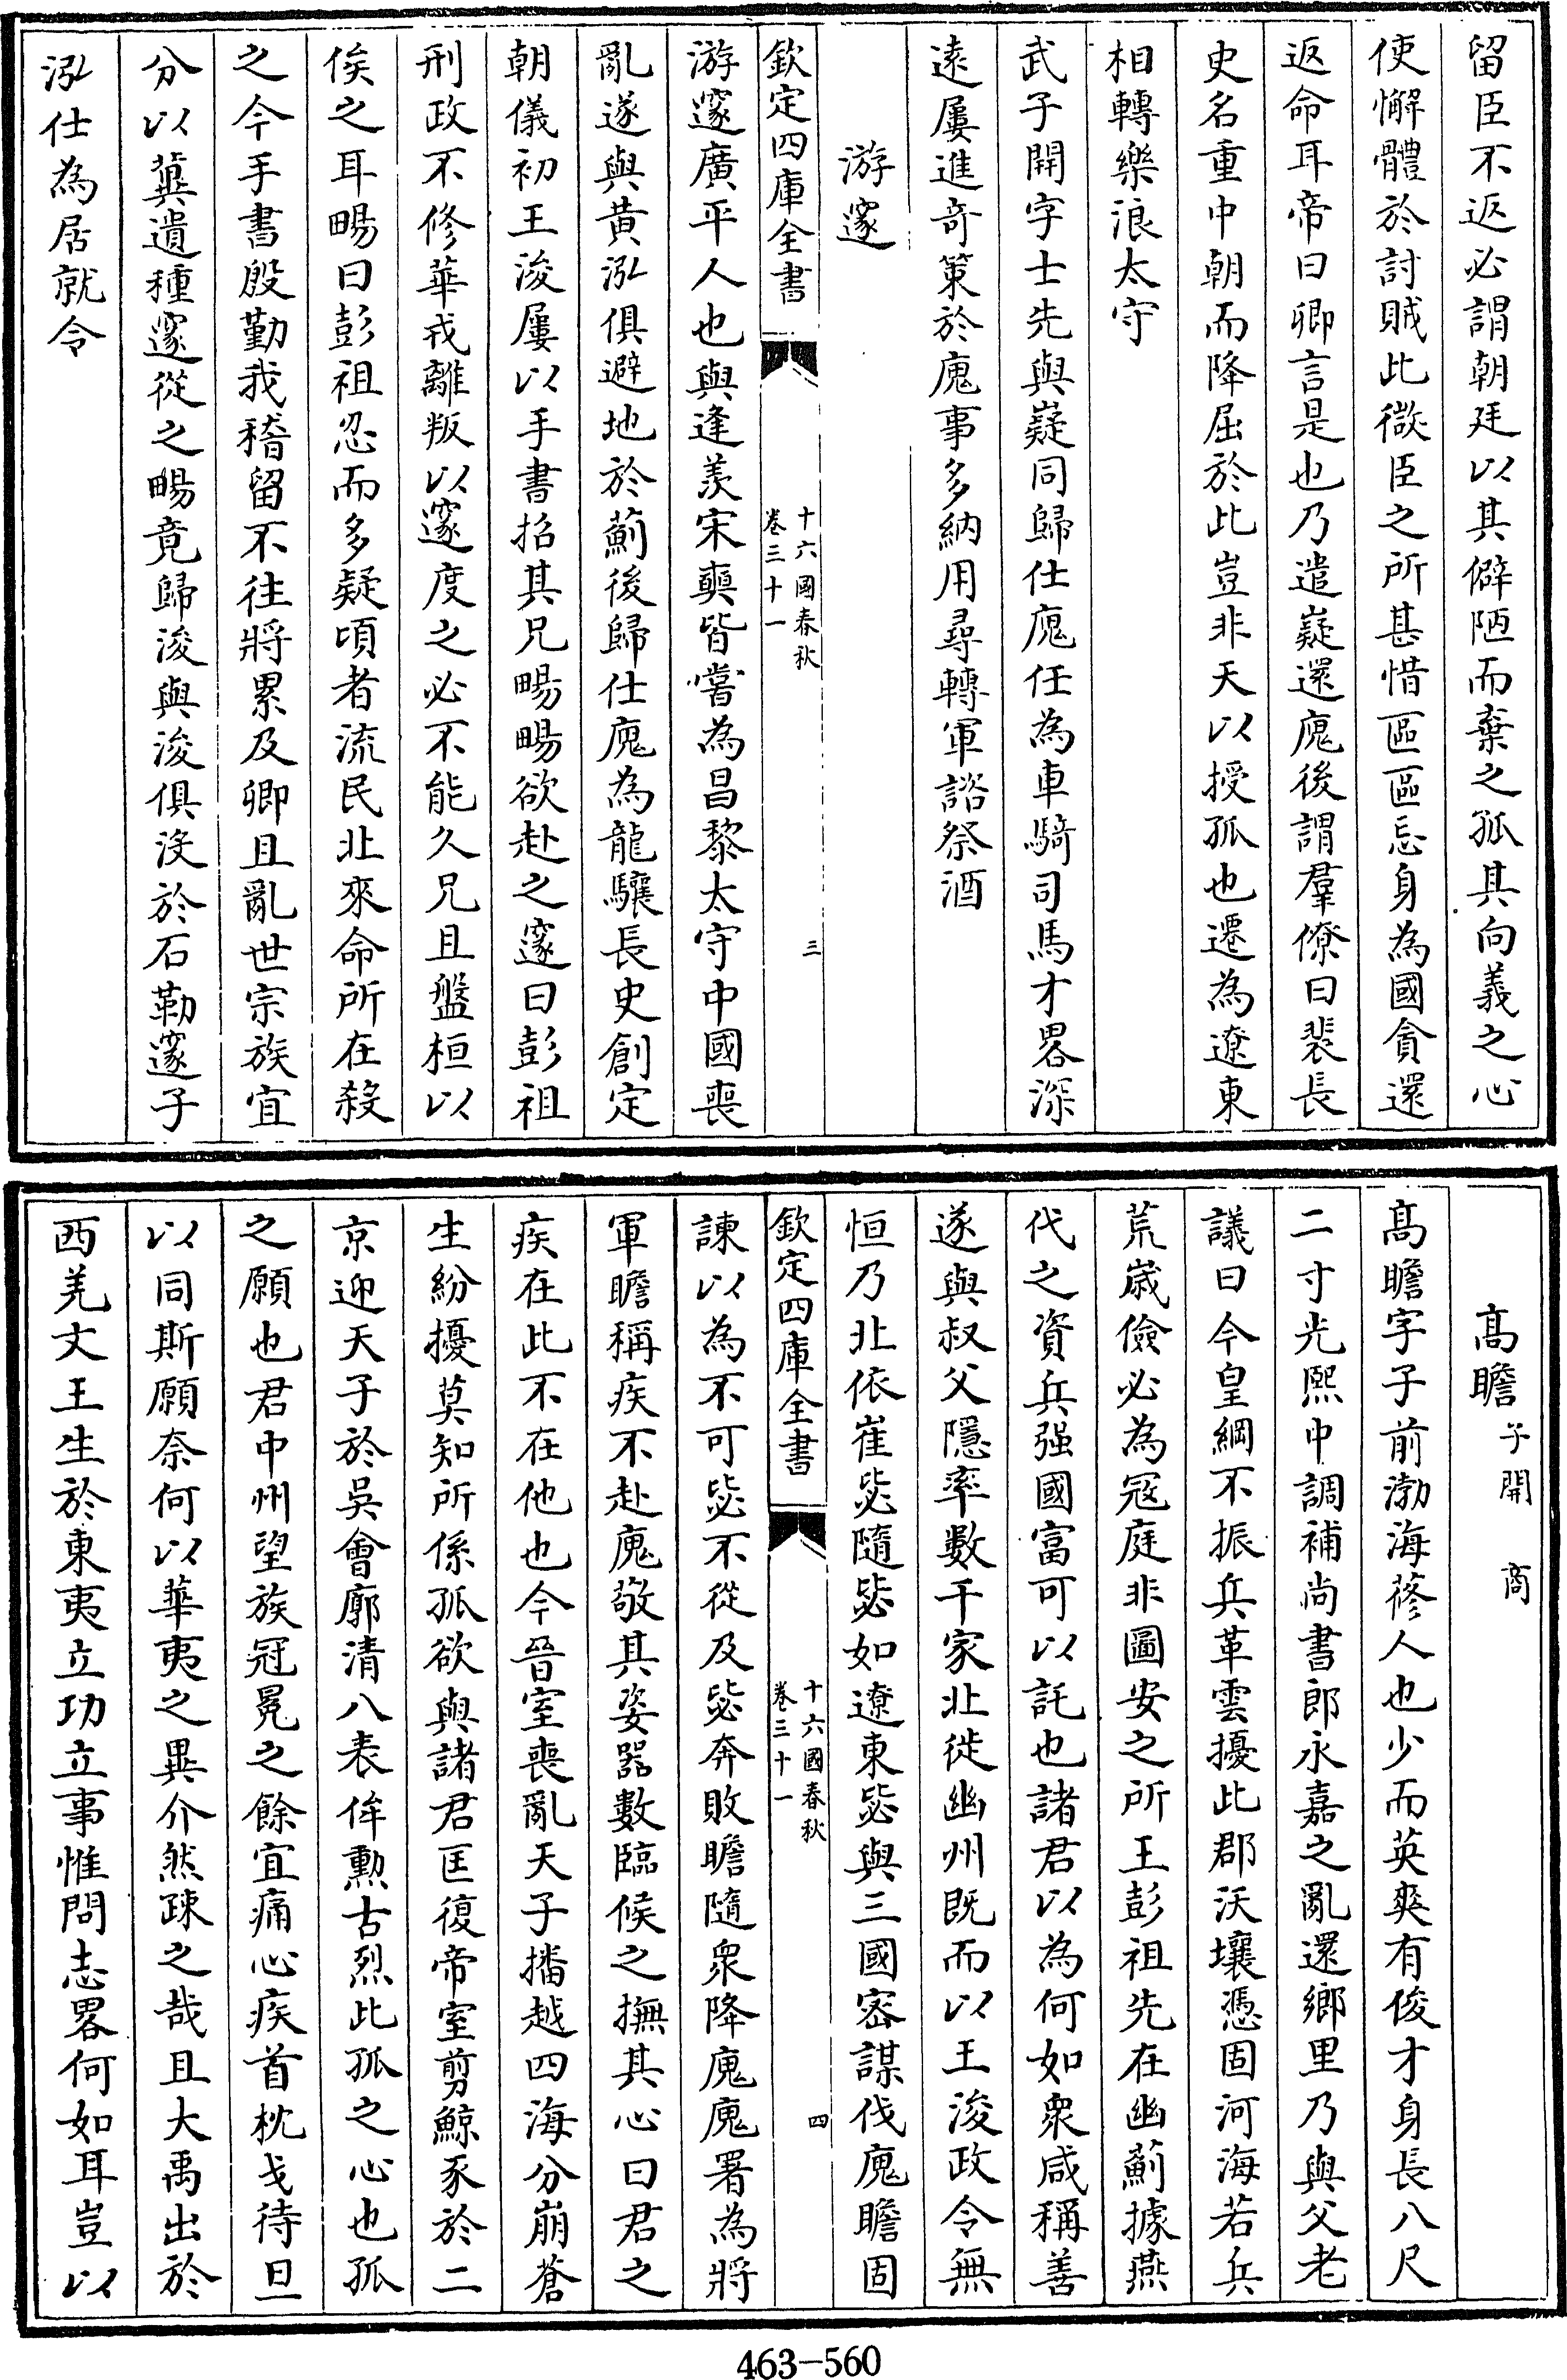 留臣不返必謂朝廷以其僻陋而棄之孤其向義之心
使懈體於討賊此微臣之所甚惜區區忘身為國貪還
返命耳帝曰卿言是也乃遣嶷還廆後謂羣僚曰裴長
史名重中朝而降屈於此豈非天以授孤也遷為遼東
相轉樂浪太守
武子開字士先與嶷同歸仕廆任為車騎司馬才畧深
遠屢進奇策於廆事多納用尋轉軍諮祭酒
游邃
欽定四庫全書
十六國春秋
卷三十一
三
游邃廣平人也與逢羨宋奭皆嘗為昌黎太守中國喪
亂遂與黄泓俱避地於薊後歸仕廆為龍驤長史創定
朝儀初王浚屢以手書招其兄暘暘欲赴之邃曰彭祖
刑政不修華戎離叛以邃度之必不能久兄且盤桓以
俟之耳暘曰彭祖忍而多疑頃者流民北來命所在殺
之今手書殷勤我稽留不往將累及卿且亂世宗族宜
分以冀遺種邃從之暘竟歸浚與浚俱沒於石勒邃子
泓仕為居就令
高瞻子開 商
高瞻字子前渤海蓨人也少而英爽有俊才身長八尺
二寸光熙中調補尚書郎永嘉之亂還鄉里乃與父老
議曰今皇綱不振兵革雲擾此郡沃壤憑固河海若兵
荒嵗儉必為寇庭非圖安之所王彭祖先在幽薊據燕
代之資兵强國富可以託也諸君以為何如衆咸稱善
遂與叔父隱率數千家北徙幽州既而以王浚政令無
恒乃北依崔毖隨毖如遼東毖與三國密謀伐廆瞻固
欽定四庫全書
十六國春秋
卷三十一
四
諫以為不可毖不從及毖奔敗瞻隨衆降廆廆署為將
軍瞻稱疾不赴廆敬其姿器數臨候之撫其心曰君之
疾在此不在他也今晉室喪亂天子播越四海分崩蒼
生紛擾莫知所係孤欲與諸君匡復帝室剪鯨豕於二
京迎天子於吳會廓清八表侔勲古烈此孤之心也孤
之願也君中州望族冠冕之餘宜痛心疾首枕戈待旦
以同斯願奈何以華夷之異介然疎之哉且大禹出於
西羌文王生於東夷立功立事惟問志畧何如耳豈以
463-560